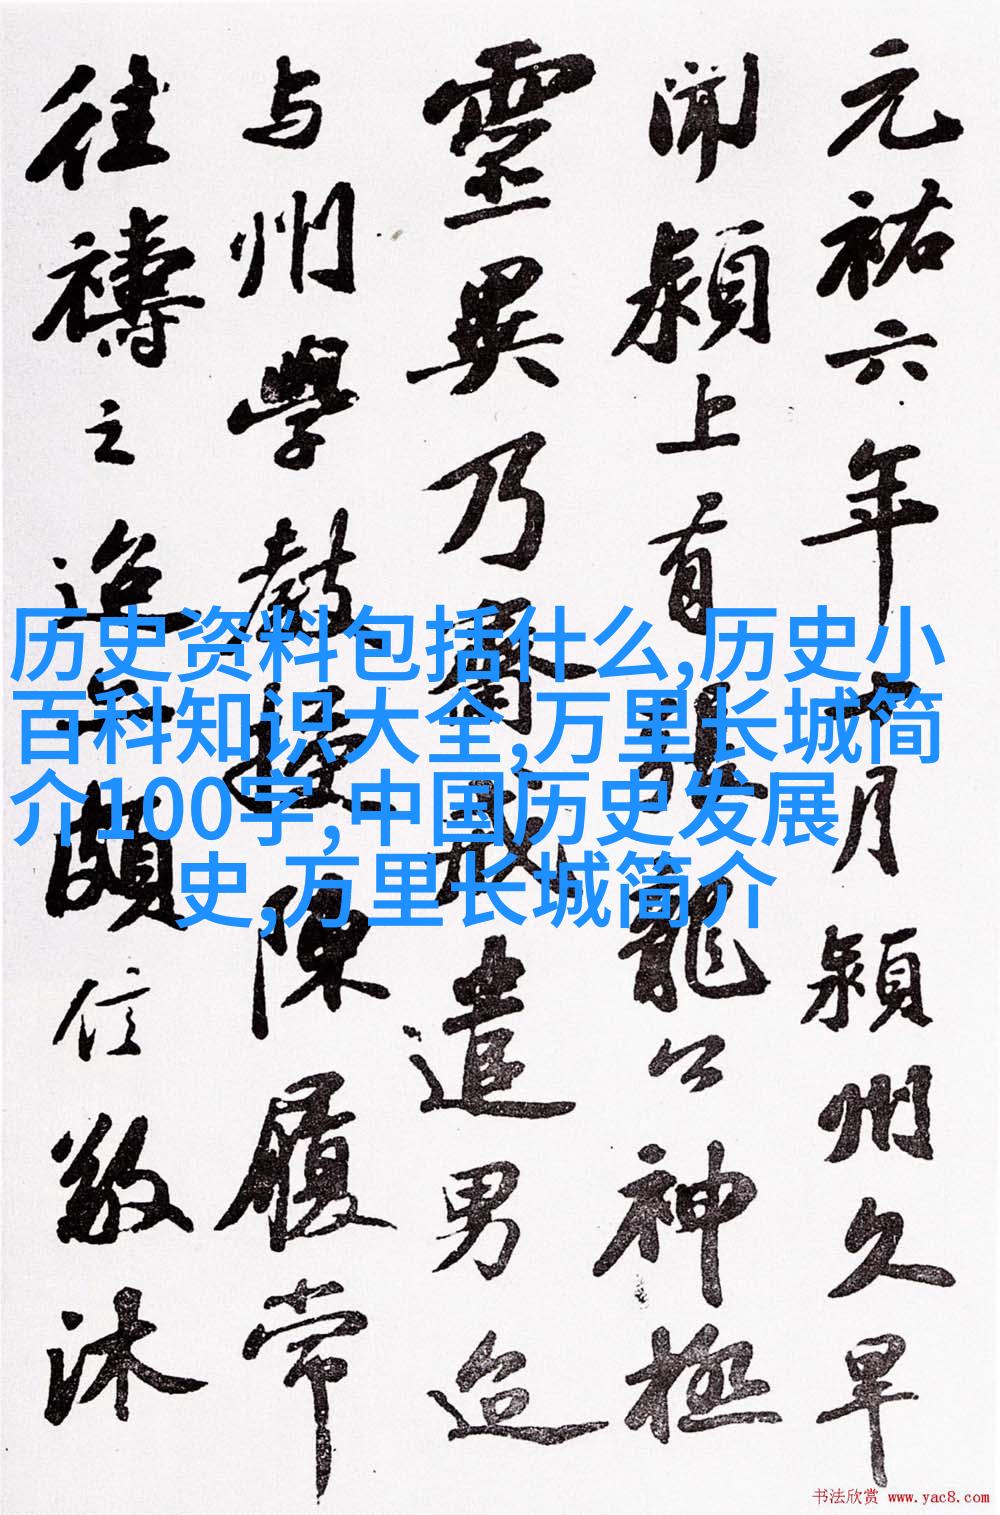 元祐六年十月潁州久旱
聞潁上有張龍公神極
靈異乃齋戒遣男迨
与州學教授陳履常
往禱之迨亦頗信敬沐
历史资料包括什么,历史小
百科知识大全,万里长城简
介100字,中国历史发展
史,万里长城简介
书法欣赏 www.yac8.com